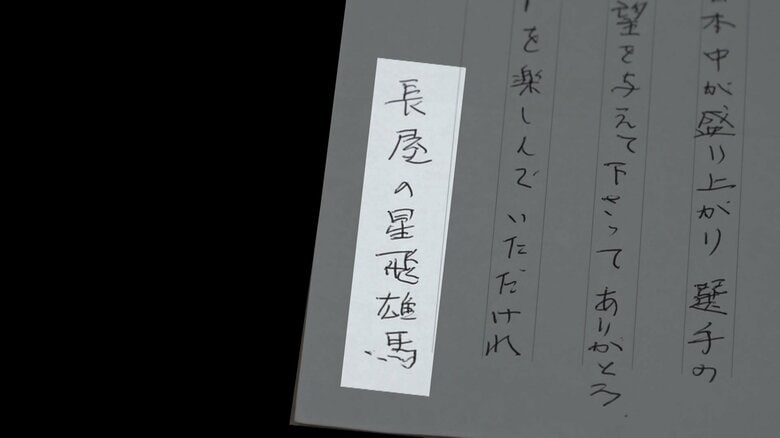 本中が盛り上がり選手の
望を与えて下さってありがとう.
を楽しんでいただけれ
長屋の星飛雄馬